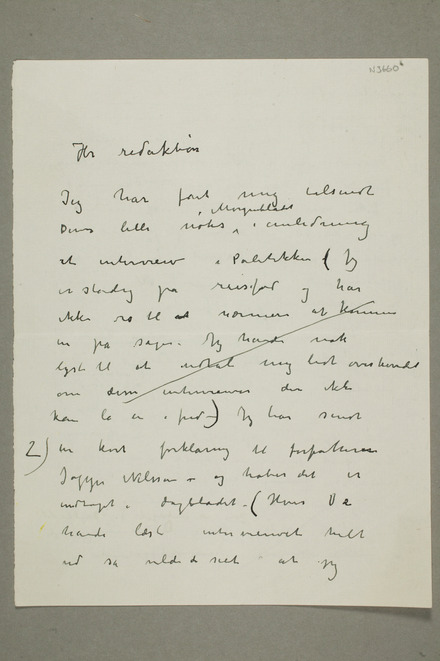 N3660
Hr redaktør
Jeg har faat mig tilsendt
Deres lille notis i Morgenbladet i anledning
et interview i Politikken (Jeg
er stadig på reisefod og har
ikke ro til at nærmere at komme
in på sagen. Jeg havde nok
lyst til at udtale mig lidt
om dem der ikke
kan la en i fred) Jeg har sendt
2) en kort forklaring til forfatteren
Jappe Nilssen – og håber det er
indtaget i dagbladet. (Hvis De
havde læst interviewet helt
ud så vilde de set at jeg